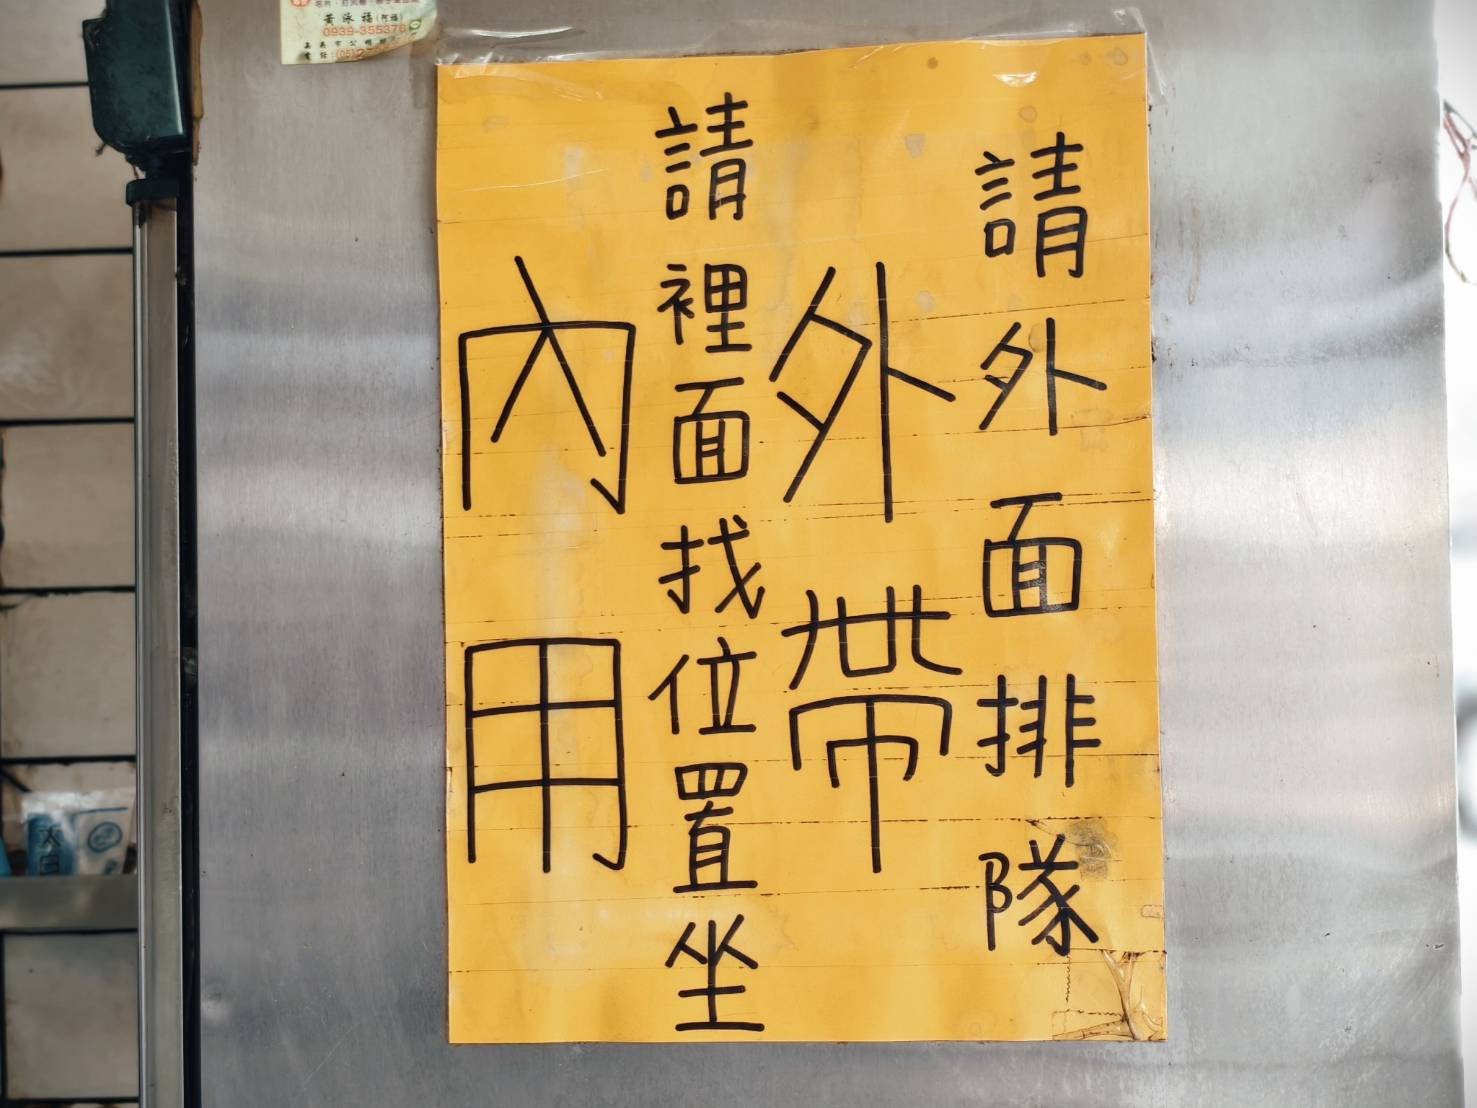 請外面排隊
外帶
請裡面找位置坐
內用
黃泳福(阿福)
0939-355378